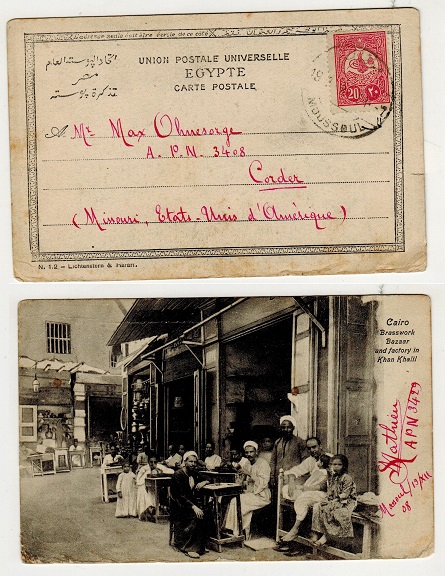 L'adresse seule doit être écrite de ce côté
UNION POSTALE UNIVERSELLE
EGYPTE
CARTE POSTALE
اتحاد البوسته العام
مصر
تذكرة بوسته
20
٢٠
MOUSSOUL
A. Mr. Max Ohnesorge
A. P. N. 3408
Corder
(Missouri, Etats-Unis d'Amérique)
N. 12 – Lichtenstern & Harari.
Cairo
Brasswork
Bazaar
and factory in
Khan Khalil
Mathieu
APN 3429
08